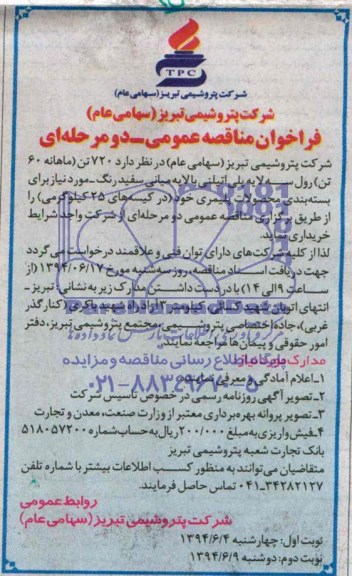 TPC
شرکت پتروشیمی تبریز (سهامی عام)
شرکت پتروشیمی تبریز (سهامی عام)
فراخوان مناقصه عمومی - دو مرحله‌ای
شرکت پتروشیمی تبریز (سهامی عام) در نظر دارد ۷۲۰ تن (ماهانه ۶۰
تن) رول سه لایه پلی اتیلنی بالایه میانی سفید رنگ - مورد نیاز برای
بسته‌بندی محصولات پلیمری خود (در کیسه‌های ۲۵ کیلوگرمی) را
از طریق برگزاری مناقصه عمومی دو مرحله‌ای از شرکت واجد شرایط
خریداری نماید.
لذا از کلیه شرکت‌های دارای توان فنی و علاقمند درخواست می‌گردد
جهت دریافت اسناد مناقصه، روز سه‌شنبه مورخ ۱۳۹۴/۰۶/۱۷ (از
ساعت ۹ الی ۱۴) با در دست داشتن مدارک زیر به نشانی: تبریز -
انتهای اتوبان شهید کسائی، کیلومتر ۳ آزاد راه شهید باکری (کنار گذر
غربی)، جاده اختصاصی پتروشیمی، مجتمع پتروشیمی تبریز، دفتر
امور حقوقی و پیمان‌ها مراجعه نمایند.
پایگاه اطلاع رسانی مناقصه و مزایده
مدارک مورد نیاز:
۱- اعلام آمادگی و معرفی نماینده
۲- تصویر آگهی روزنامه رسمی در خصوص تاسیس شرکت
۳- تصویر پروانه بهره‌برداری معتبر از وزارت صنعت، معدن و تجارت
۴- فیش واریزی به مبلغ ۲۰۰/۰۰۰ ریال به حساب شماره ۵۱۸۰۵۷۲۰۰
بانک تجارت شعبه پتروشیمی تبریز
متقاضیان می‌توانند به منظور کسب اطلاعات بیشتر با شماره تلفن
۰۴۱-۳۴۲۸۲۱۲۷ تماس حاصل فرمایند.
روابط عمومی
شرکت پتروشیمی تبریز (سهامی عام)
نوبت اول: چهارشنبه ۱۳۹۴/۶/۴
نوبت دوم: دوشنبه ۱۳۹۴/۶/۹